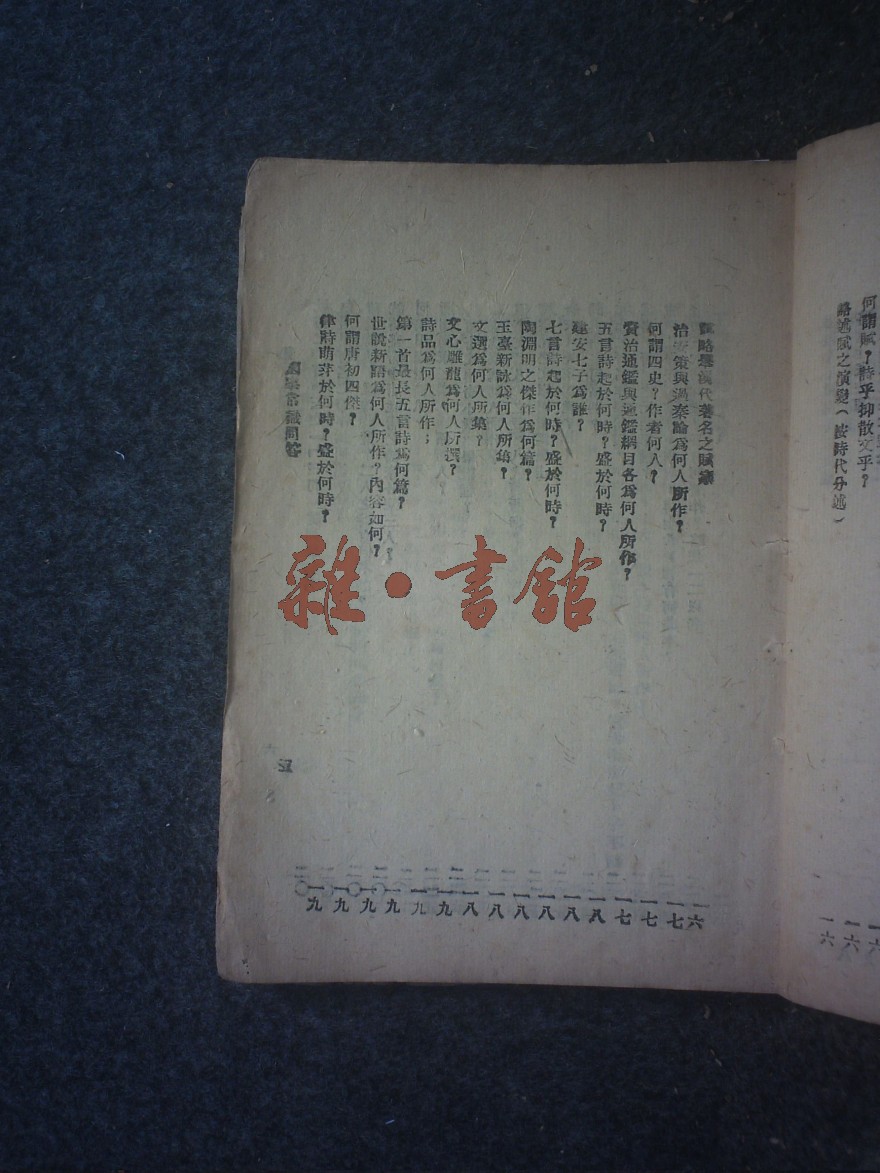 何謂賦？詩乎抑散文乎？
一六
略述賦之演變（按時代分述）
一六
略舉漢代著名之賦家
一六
治安策與過秦論爲何人所作？
一七
何謂四史？作者何人？
一七
資治通鑑與通鑑綱目各爲何人所作？
一七
五言詩起於何時？盛於何時？
一八
建安七子爲誰？
一八
七言詩起於何時？盛於何時？
一八
陶淵明之傑作爲何篇？
一八
玉臺新詠爲何人所集？
一八
文選爲何人所集？
一八
文心雕龍爲何人所撰？
一九
詩品爲何人所作；
一九
第一首最長五言詩爲何篇？
一九
世說新語爲何人所作？內容如何？
一九
何謂唐初四傑？
一九
律詩萌芽於何時？盛於何時？
一九
國學常識問答
五
雜·書館